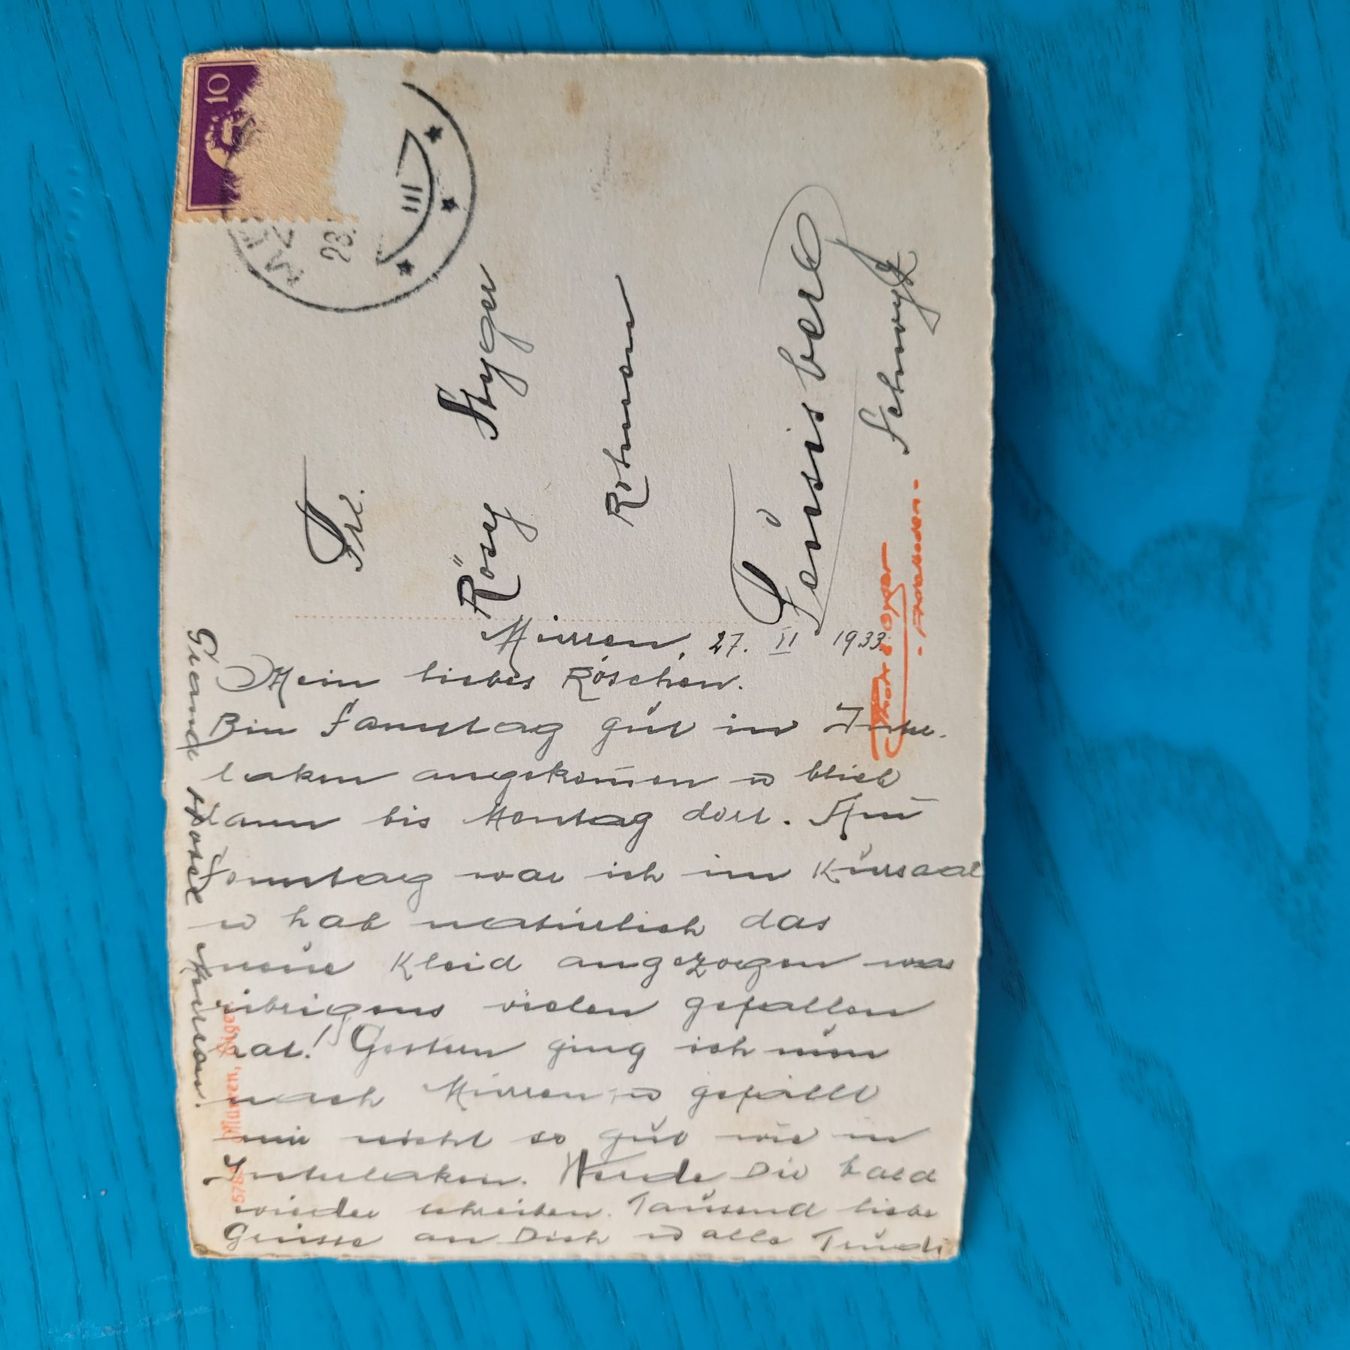 10
28.
III
Frl.
Rösy Styger
Rotmen
Schwyz
Mürren, 27. II 1933
Mein liebes Röschen.
Bin Samstag gut in Inter-
laken angekommen u blieb
dann bis Montag dort. Am
Sonntag war ich im Kursaal
u hab natürlich das
neue Kleid angezogen was
übrigens vielen gefallen
hat! Gestern ging ich nun
nach Mürren u gefällt
mir nicht so gut wie in
Interlaken. Werde Dir bald
wieder schreiben. Tausend liebe
Grüsse an Dich u alle Trudi
Grand Hotel Mürren.
Mürren, Eiger